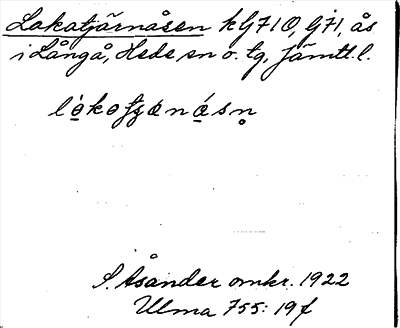 Lakatjärnåsen k G710, Gj71, ås
i Långå, Hede sn o. tg, Jämtl. l.
S. Åsander omkr. 1922
Ulma 755: 19f